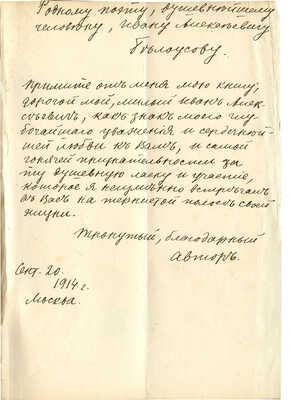 Родному поэту, душевнѣйшему
человѣку, Ивану Алексѣевичу
Бѣлоусову.
Примите отъ меня мою книгу,
дорогой мой, милый Иванъ Алек-
сѣевичъ, какъ знакъ моего глу-
бочайшаго уваженія и сердечнѣй-
шей любви къ Вамъ, и самой
горячей признательности за
ту душевную ласку и участіе,
которое я неизмѣнно встрѣчалъ
въ Васъ на тернистой полосѣ своей
жизни.
Тронутый, благодарный
Авторъ.
Сент. 20.
1914 г.
Москва.